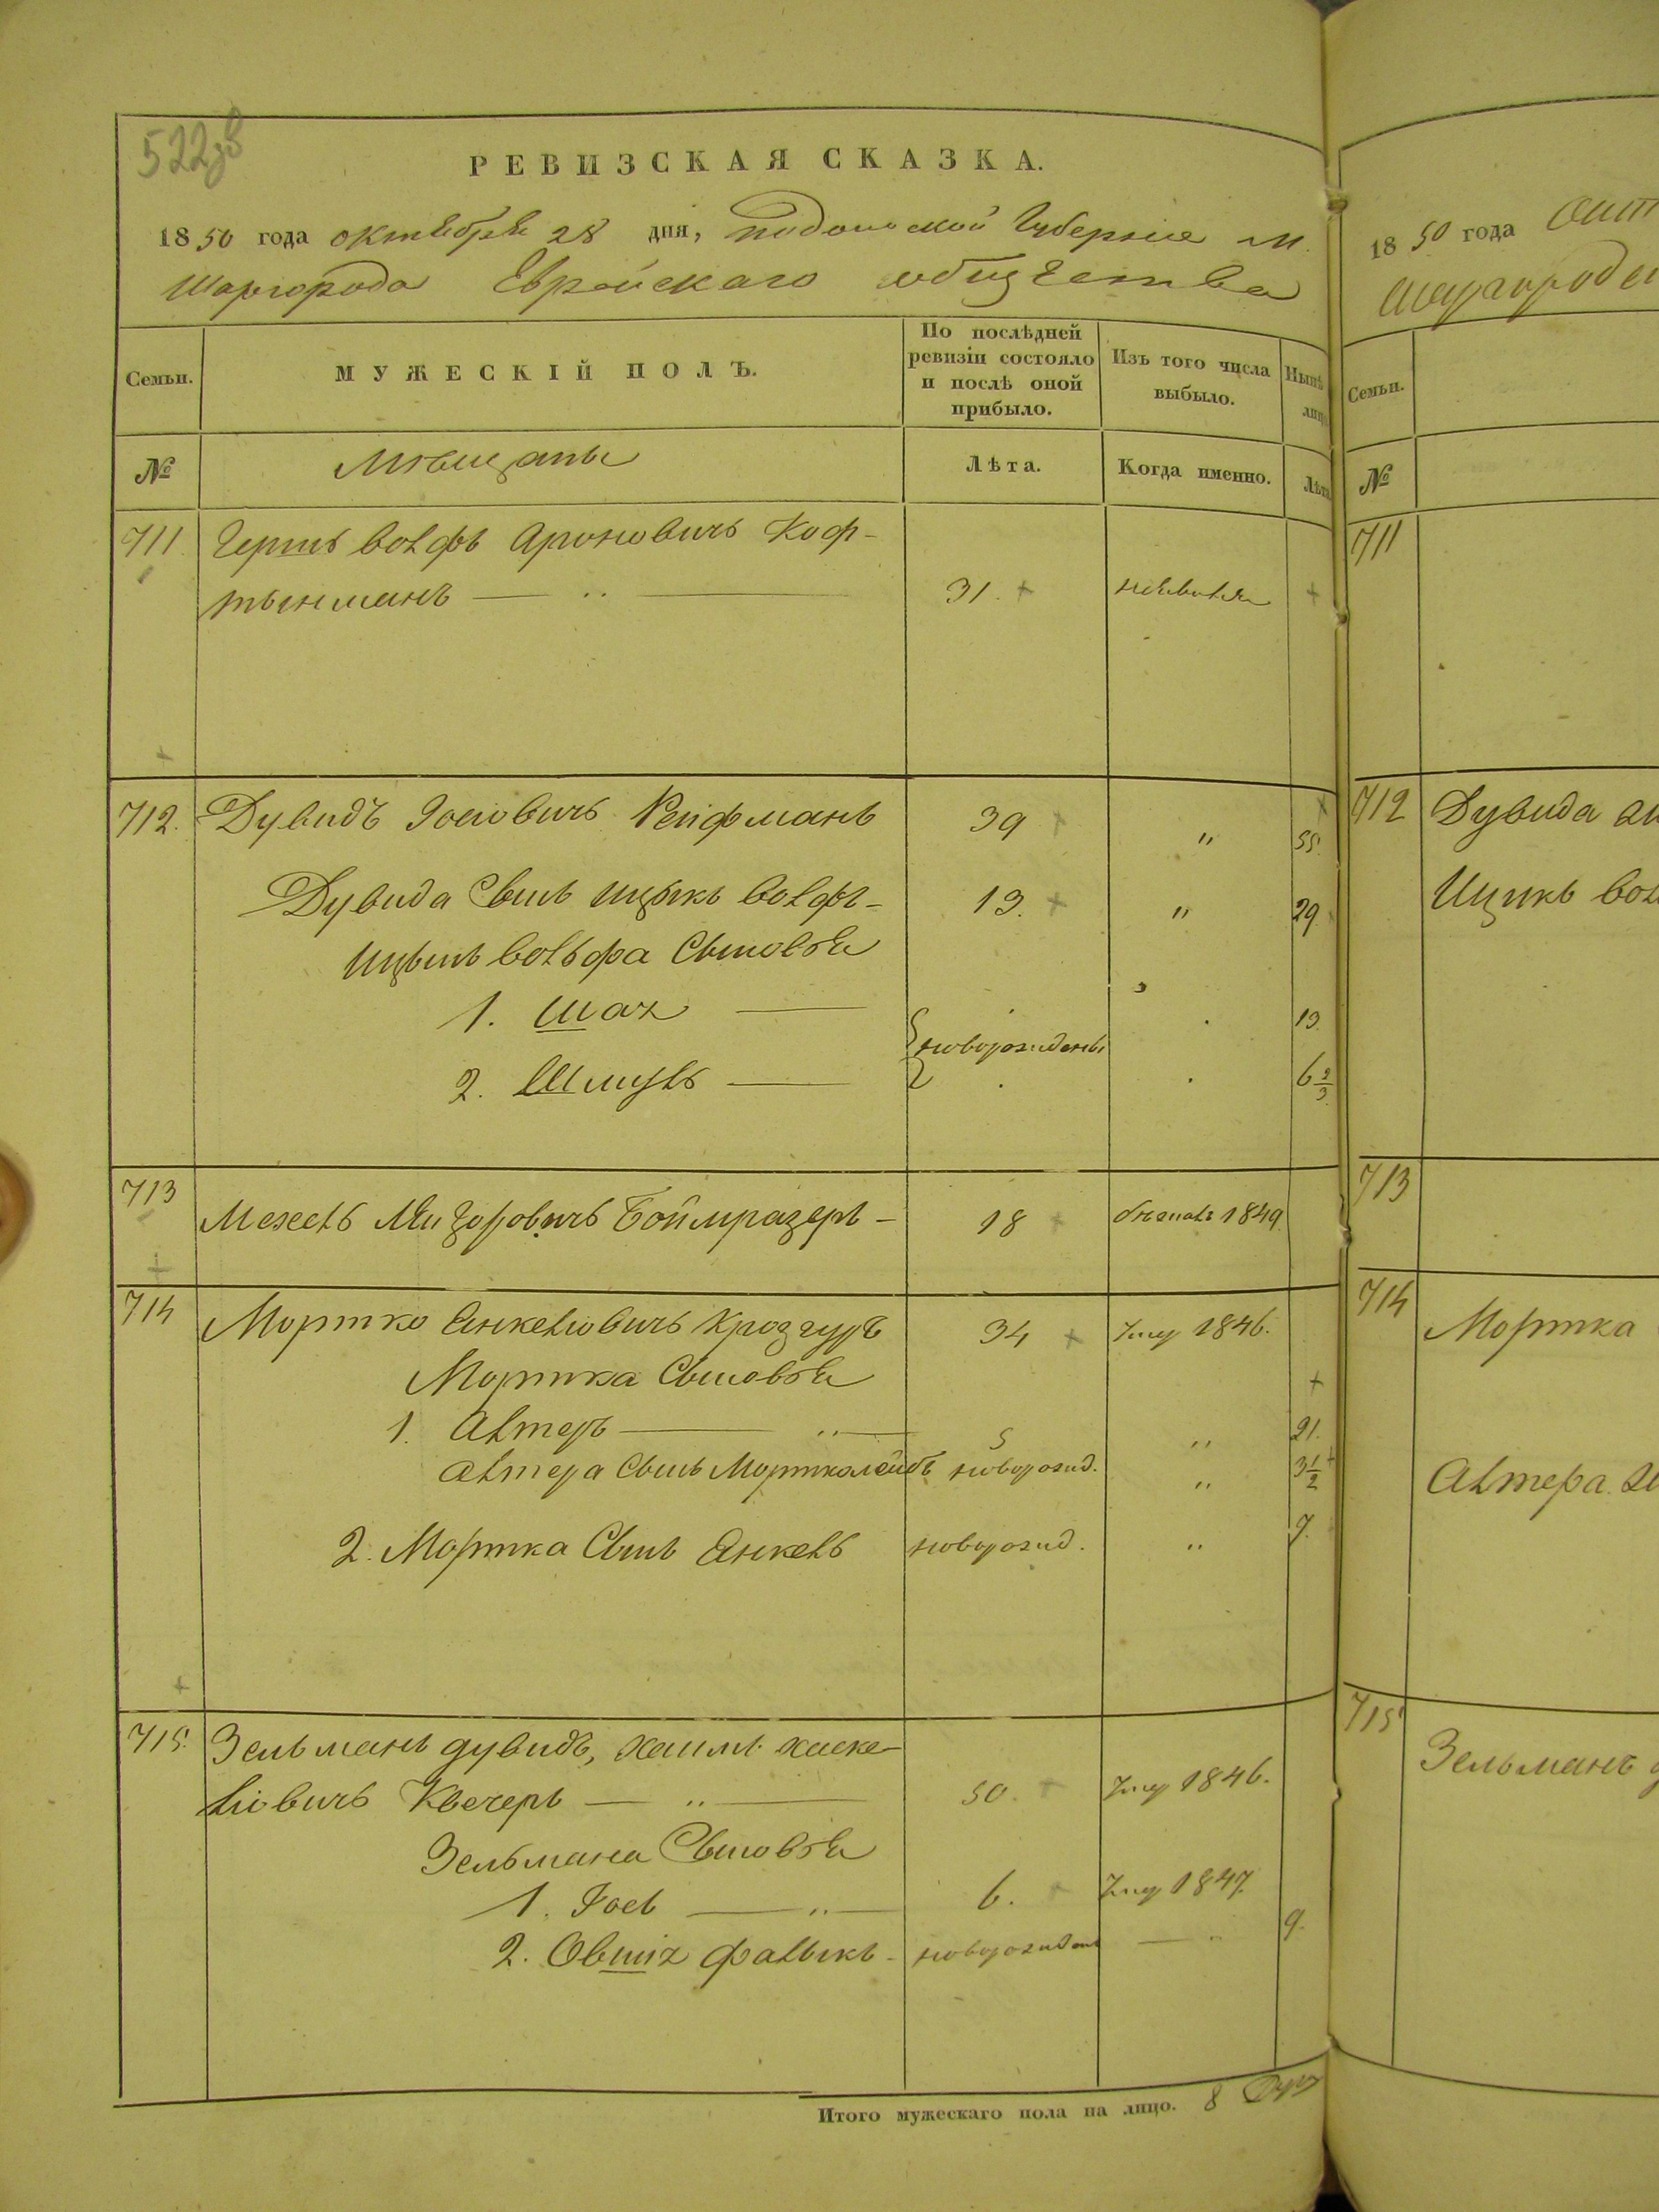 РЕВИЗСКАЯ СКАЗКА.
1850 года октября 28 дня, подольской Губернии м.
Шаргорода Еврейскаго общества
Семьи.
МУЖЕСКІЙ ПОЛЪ.
По послѣдней ревизіи состояло и послѣ оной прибыло.
Изъ того числа выбыло.
Нынѣ
№
Мѣщаны
Лѣта.
Когда именно.
Лѣта
711. Гершъ Волфъ Ароновичъ Коф-
тынманъ — 31.
712. Дувидъ Іосіовичъ Рейфманъ 39 " 55.
Дувида Сынъ Ицыкъ Волфъ- 13. " 29
Ицыкъ Вольфа Сыновья
1. Шая — 13.
новорождены
2. Шмуль — 6 2/3
713 18 1849
714 Мортко Янкеліовичъ 34 1846.
Мортка Сыновья
1. Алтеръ — 5 " 21.
Алтера Сынъ Мортколейбъ новорожд. " 3 1/2
2. Мортка Сынъ Янкель новорожд. " 7.
715. Зельманъ дувидъ, хаимъ хаске-
ліовичъ Квечеръ — 50. 1846.
Зельмана Сыновья
1. Іось — 6. 1847.
2. Овшія фалыкъ - новорожден 9.
Итого мужескаго пола на лицо. 8
18 50 года
Семьи.
№
711
712 Дувида
Ицикъ
713
714 Мортка
Алтера
715 Зельманъ